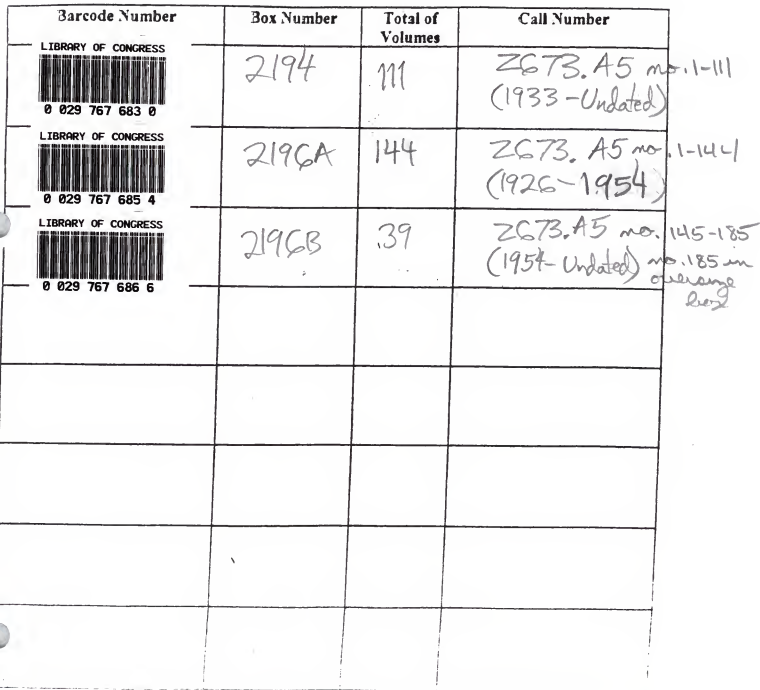 Barcode Number Box Number Total of Volumes Call Number
LIBRARY OF CONGRESS
0 029 767 683 0
2194 111 Z673. A5 no. 1-111
(1933 - Undated)
LIBRARY OF CONGRESS
0 029 767 685 4
2196A 144 Z673. A5 no. 1-144
(1926-1954)
LIBRARY OF CONGRESS
0 029 767 686 6
2196B 39 Z673. A5 no. 145-185
(1954- Undated) no. 185 in
box